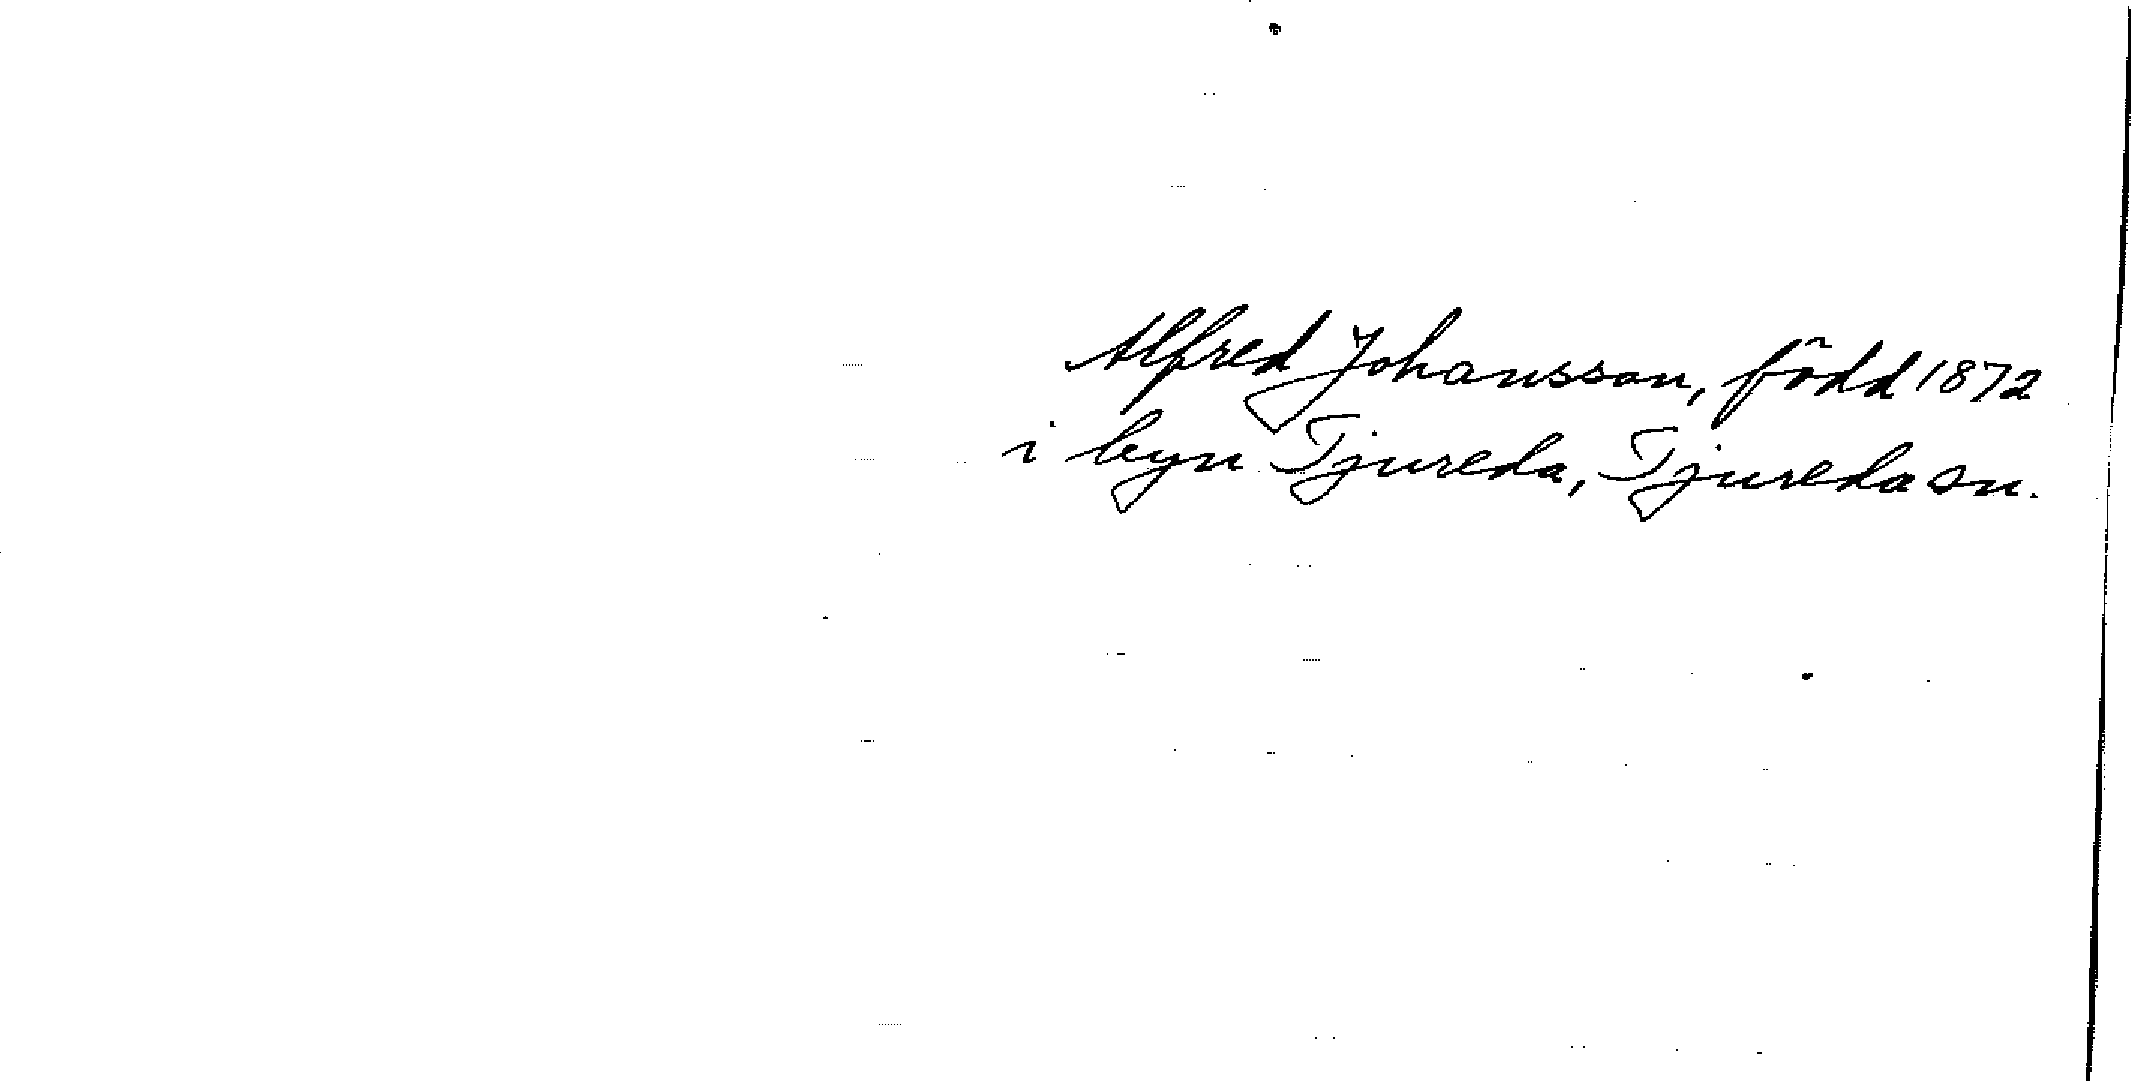 Alfred Johansson, född 1872
i byn Tjureda, Tjureda sn.